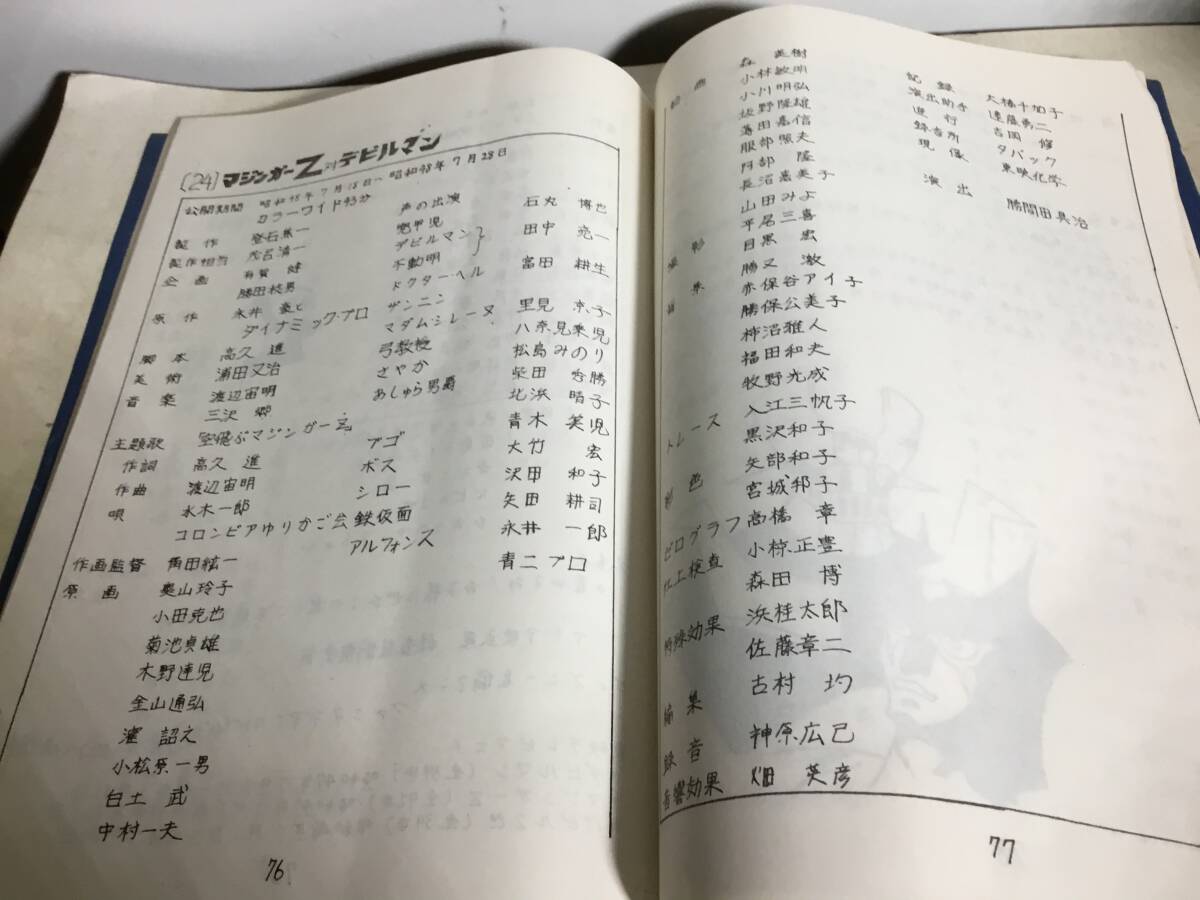 〔24〕マジンガーZ対デビルマン
公開期間 昭和48年7月18日〜昭和48年7月28日
カラーワイド43分
製作 登石雋一
製作担当 茂呂清一
企画 有賀健
勝田稔男
原作 永井豪と
ダイナミック・プロ
脚本 高久進
美術 浦田又治
音楽 渡辺宙明
三沢郷
主題歌 空飛ぶマジンガーZ
作詞 高久進
作曲 渡辺宙明
唄 水木一郎
コロンビアゆりかご会
作画監督 角田紘一
原画 奥山玲子
小田克也
菊池貞雄
木野達児
金山通弘
窪詔之
小松原一男
白土武
中村一夫
声の出演
兜甲児 石丸博也
デビルマン}
不動明 田中亮一
ドクター・ヘル 富田耕生
ザンニン
マダム・シレーヌ 里見京子
弓教授 八奈見乗児
さやか 松島みのり
あしゅら男爵 柴田秀勝
北浜晴子
ブゴ 青木笑児
ボス 大竹宏
シロー 沢田和子
鉄仮面 矢田耕司
アルフォンス 永井一郎
青二プロ
76
動画 森英樹
小林敏明
小川明弘
坂野隆雄
薄田嘉信
服部照夫
阿部隆
長沼寿美子
山田みよ
平尾三喜
撮影 目黒宏
勝又激
背景 赤保谷アイ子
勝保公美子
柿沼雅人
福田和夫
牧野光成
トレース 入江三帆子
黒沢和子
彩色 矢部和子
宮城邦子
ゼログラフ 高橋章
仕上検査 小椋正豊
森田博
特殊効果 浜桂太郎
佐藤章二
編集 古村均
録音 神原広己
音響効果 畑英彦
記録 大橋千加子
演出助手 遠藤勇二
進行 吉岡修
録音所 タバック
現像 東映化学
演出 勝間田具治
77